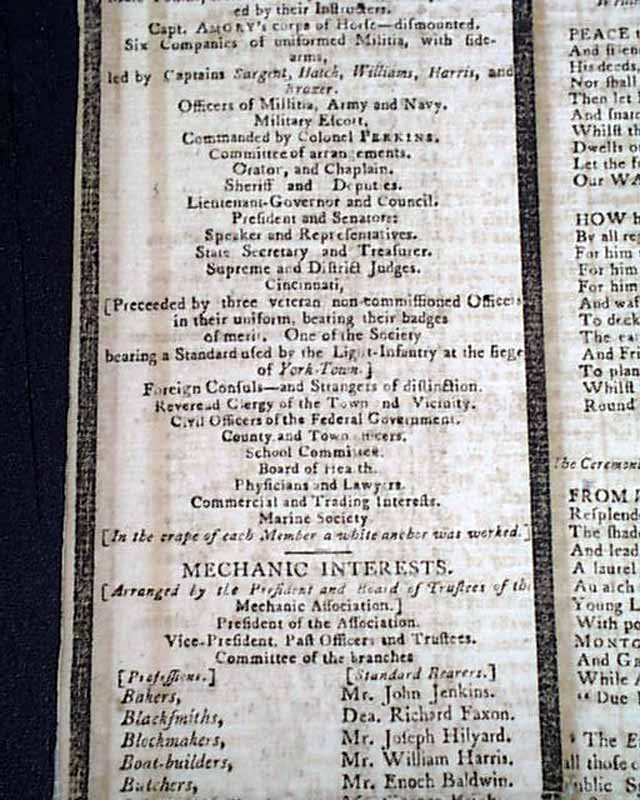 ed by their Inſtructers.
Capt. AMORY's corps of Horſe—diſmounted.
Six Companies of uniformed Militia, with ſide-
arms,
led by Captains Sargent, Hatch, Williams, Harris, and
Officers of Millitia, Army and Navy.
Military Eſcort,
Commanded by Colonel PERKINS.
Committee of arrangements.
Orator, and Chaplain.
Sheriff and Deputies.
Lieutenant-Governor and Council.
Preſident and Senators
Speaker and Repreſentatives.
State Secretary and Treaſurer.
Supreme and Diſtrict Judges.
Cincinnati,
[Preceeded by three veteran non-commiſſioned Officers
in their uniform, bearing their badges
of merit. One of the Society
bearing a Standard uſed by the Light-Infantry at the ſiege
of York-Town.]
Foreign Conſuls—and Strangers of diſtinction.
Reverend Clergy of the Town and Vicinity.
Civil Officers of the Federal Government.
County and Town officers.
School Committee.
Board of Health.
Phyſicians and Lawyers.
Commercial and Trading Intereſts.
Marine Society
[In the crape of each Member a white anchor was worked.]
MECHANIC INTERESTS.
[Arranged by the Preſident and Board of Truſtees of the
Mechanic Aſſociation.]
Preſident of the Aſſociation.
Vice-Preſident, Paſt Officers and Truſtees.
Committee of the branches
[Profeſſions.] [Standard Bearers.]
Bakers, Mr. John Jenkins.
Blackſmiths, Dea. Richard Faxon.
Blockmakers, Mr. Joſeph Hilyard.
Boat-builders, Mr. William Harris.
Butchers, Mr. Enoch Baldwin.
PEACE
And
His deeds,
Nor ſhall
Then let
And
Whilſt th
Dwells
Let the
Our WA
HOW
By all
For him
For him
For him
And
To deck
The
And Fri
To plan
Whilſt
Round
The Ceremoni
FROM
Reſplend
The ſhad
And lead
A laurel
Young L
With
MONTG
And
While
"Due
The
all thoſe
Public S